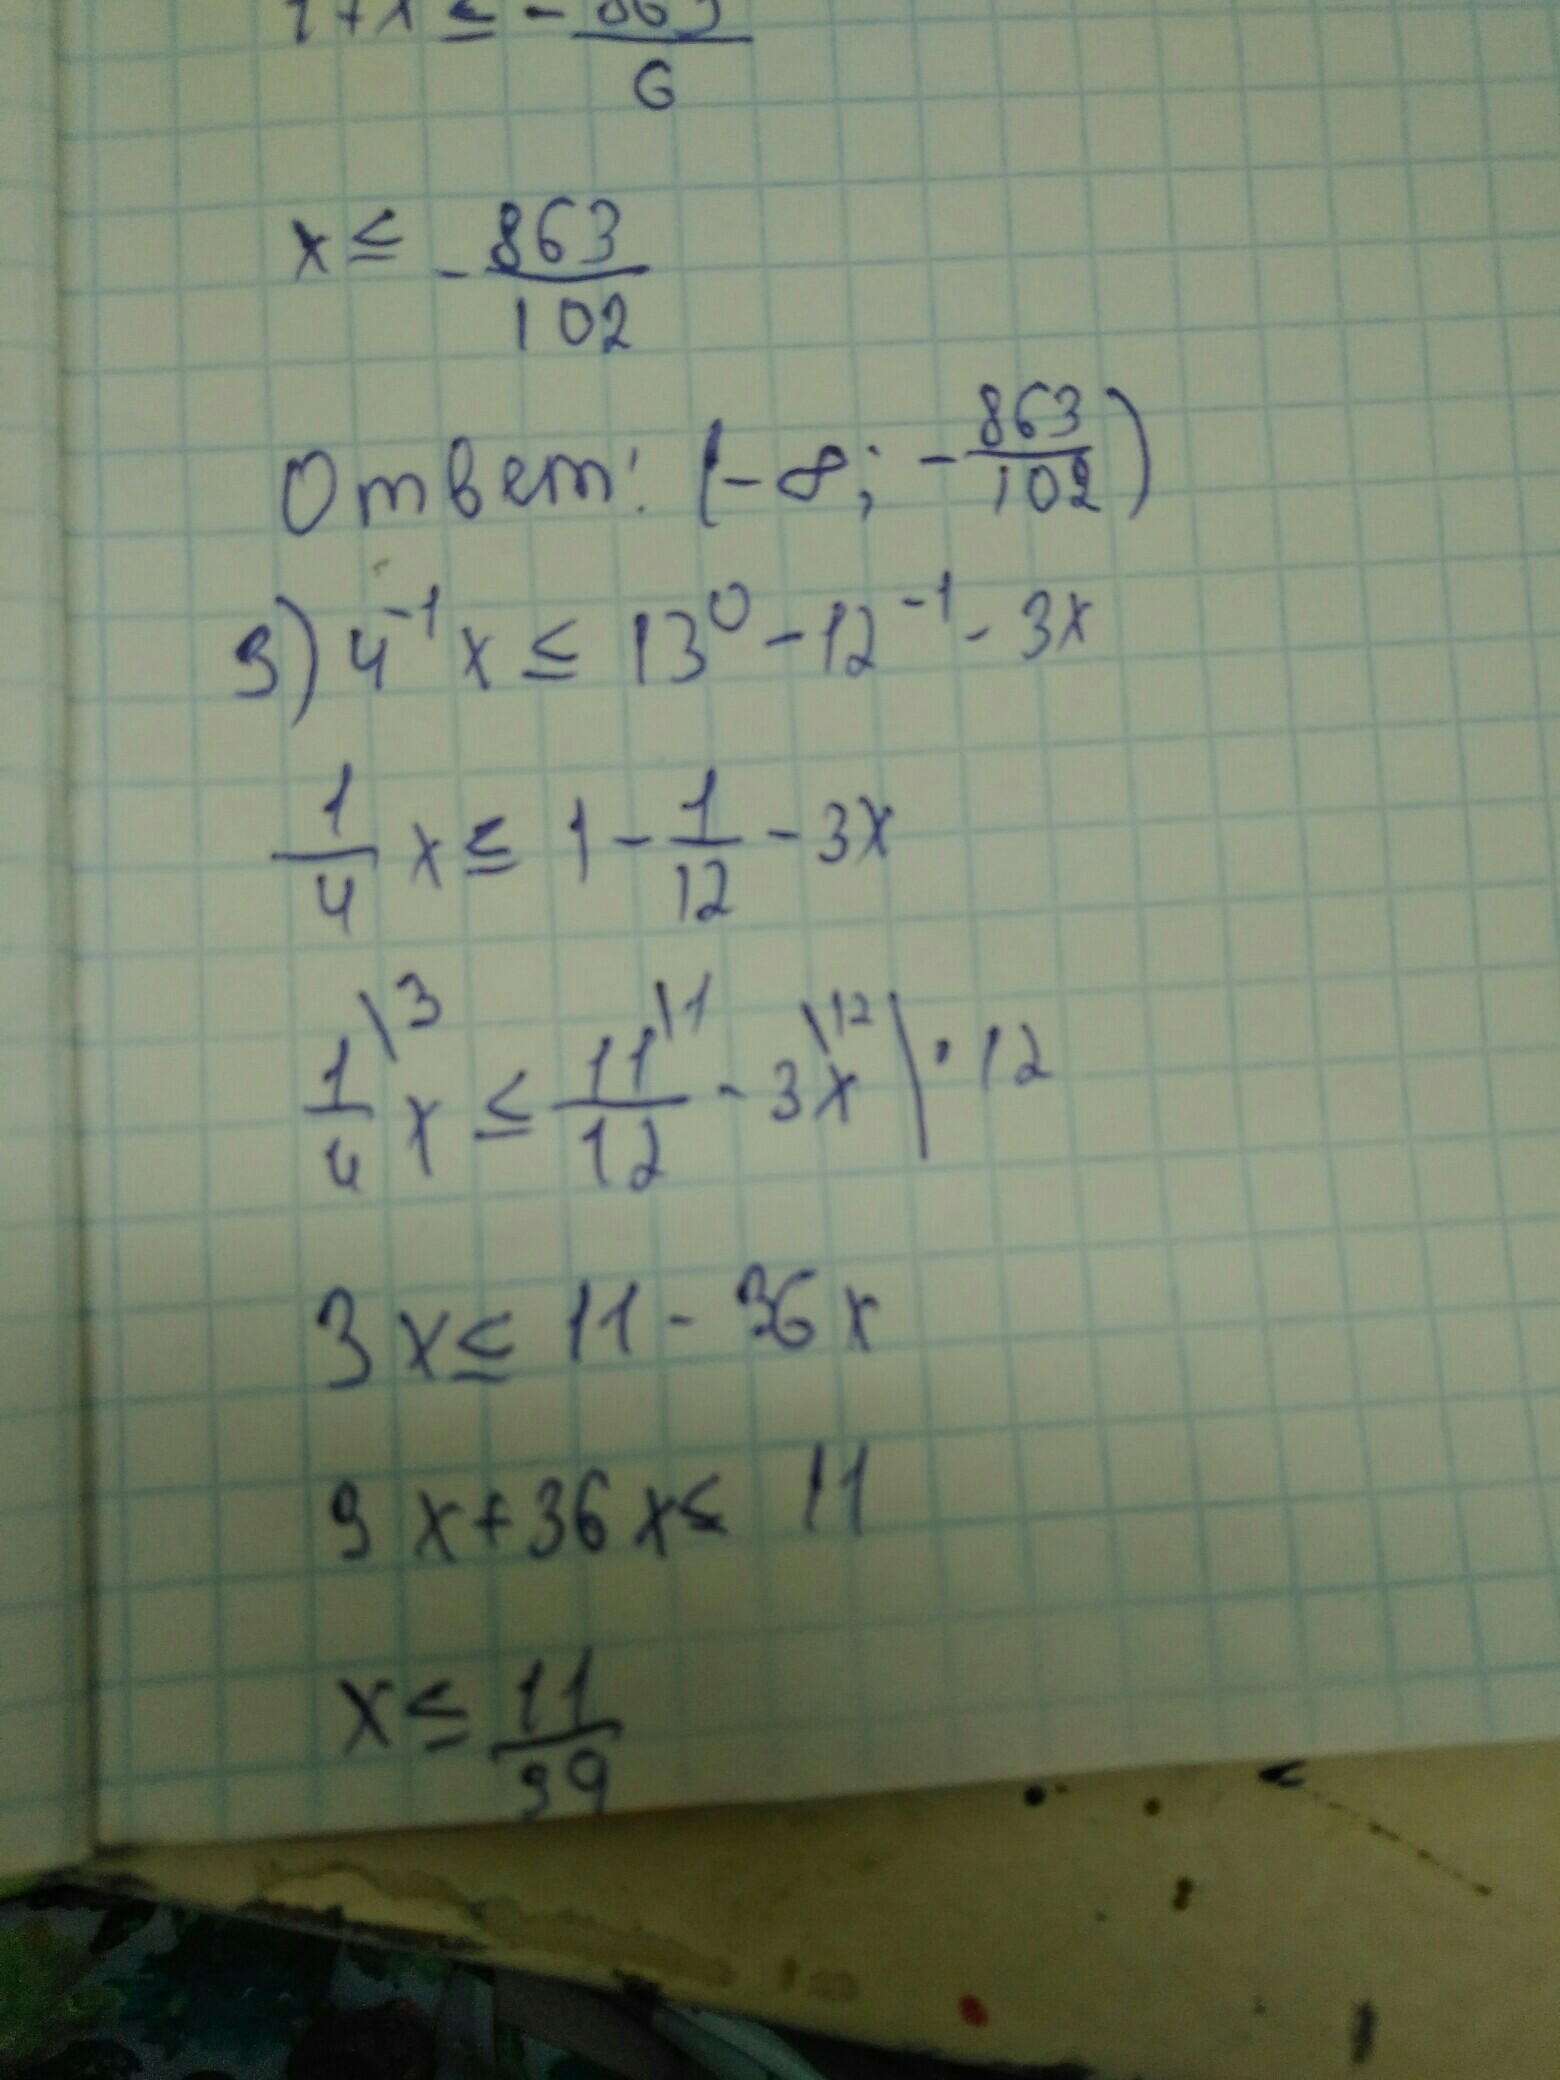 x ≤ - 863/102
Ответ: (-∞; - 863/102)
3) 4⁻¹x ≤ 13⁰ - 12⁻¹ - 3x
1/4 x ≤ 1 - 1/12 - 3x
1\3/4 x ≤ 11\1/12 - 3x\12 | · 12
3x ≤ 11 - 36x
3x + 36x ≤ 11
x ≤ 11/39